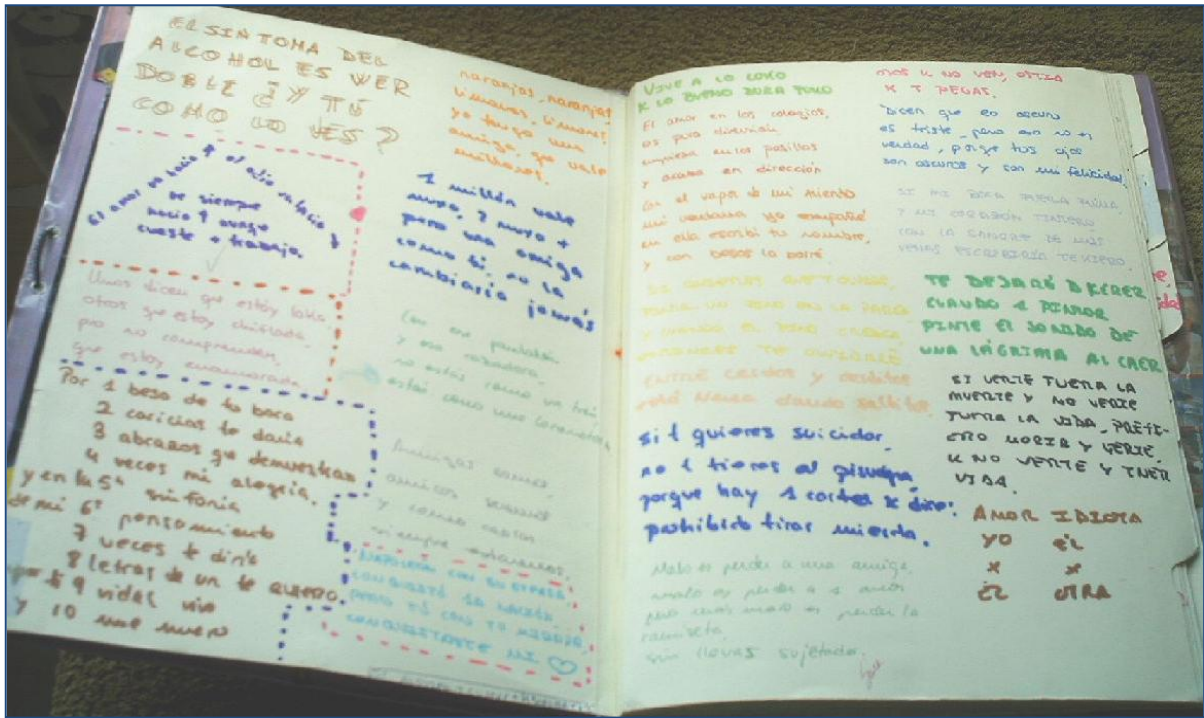 EL SINTOMA DEL
ALCOHOL ES VER
DOBLE Y TÚ
COMO LO VES?
El amor va hacia el olio va hacia
se siempre
hacia 9 aunqe
cueste + trabajo.
Unos dicen que estoy loka,
otros que estoy chiflada,
pro no comprenden,
que estoy enamorada.
Por 1 beso de tu boca
2 caricias te daria
3 abrazos qe demuestran
4 veces mi alegria.
y en la 5ª sinfonia
de mi 6º pensamiento
7 veces t diría
8 letras de un te quiero.
por ti 9 vidas vivo
y 10 me muero
naranjas, naranjas
limones, limones
yo tengo una
amiga, qe vale
millones.
1 millón vale
muxo, 2 muxo +
pero una amiga
como tú, no la
cambiaría jamás
Con ese pantalón
y esa cazadora
no estás como un tren,
estás como una locomotora
Amigas somos
amigas seremos
y como
siempre estaremos.
NAPOLEON CON SU ESPADA
CONQUISTÓ LA NACIÓN
PERO TÚ CON TU MIRADA
CONQUISTASTE MI ♡
VIVE A LO LOKO
K LO BUENO DURA POKO
El amor en los colegios,
es pura diversión
empieza en los pasillos
y acaba en dirección
Con el vapor de mi aliento
mi ventana yo empañé
en ella escribí tu nombre,
y con besos la borré.
SI QUIERES QUE T OLVIDE,
PINTA UN PINO EN LA PARED
Y CUANDO EL PINO CREZCA,
ENTONCES TE OLVIDARÉ
ENTRE CARDOS y
está Nerea dando saltitos
si t quieres suicidar,
no t tires al
porque hay 1 cartel k dice:
prohibido tirar mierda.
Malo es perder a una amiga,
malo es perder a 1 amor
pro mas malo es perder la
camiseta,
sin llevar sujetador.
MOS K NO VEN, OSTIA
K T PEGAS.
Dicen que lo oscuro
es triste, pero eso no es
verdad, porqe tus ojos
son oscuros y son mi felicidad.
SI MI BOCA FUERA PLUMA
Y MI CORAZÓN TINTERO
CON LA SANGRE DE MIS
VENAS ESCRIBIRÍA TEKIERO.
TE DEJARÉ D KERER
CUANDO 1 PINTOR
PINTE EL SONIDO DE
UNA LÁGRIMA AL CAER
SI VERTE FUERA LA
MUERTE Y NO VERTE
FUERA LA VIDA, PREFI-
ERO MORIR Y VERTE,
K NO VERTE Y TNER
VIDA.
AMOR IDIOTA
YO ÉL
X X
ÉL OTRA